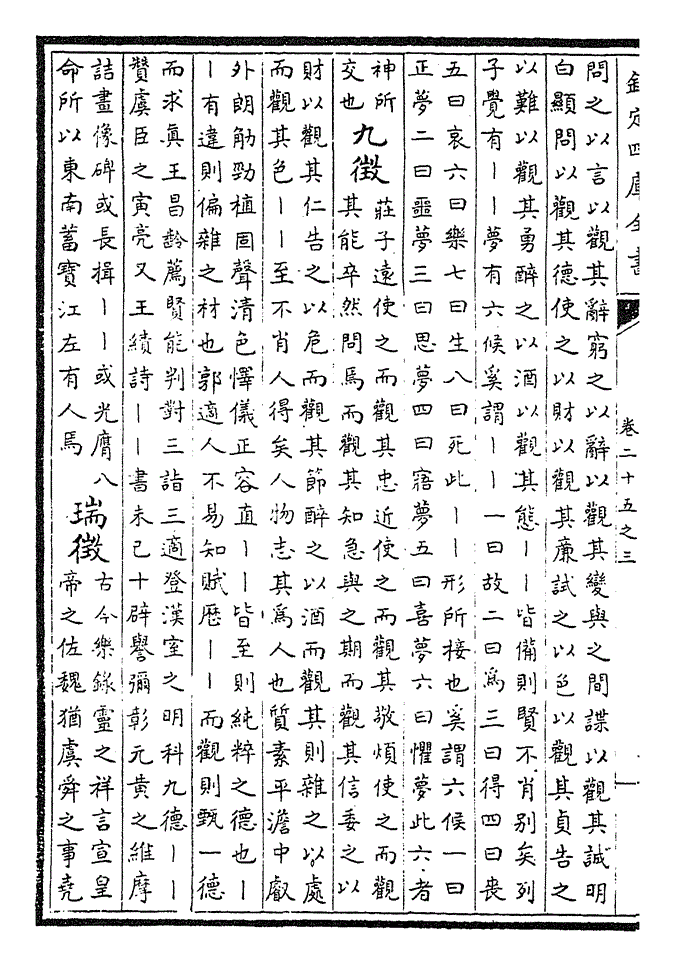 欽定四庫全書 卷二十五之三
問之以言以觀其辭窮之以辭以觀其變與之間諜以觀其誠明
白顯問以觀其德使之以財以觀其廉試之以色以觀其貞告之
以難以觀其勇醉之以酒以觀其態丨丨皆備則賢不肖別矣列
子覺有丨丨夢有六候奚謂丨丨一曰故二曰爲三曰得四曰喪
五曰哀六曰樂七曰生八曰死此丨丨形所接也奚謂六候一曰
正夢二曰噩夢三曰思夢四曰寤夢五曰喜夢六曰懼夢此六者
神所
交也
九徵
莊子遠使之而觀其忠近使之而觀其敬煩使之而觀
其能卒然問焉而觀其知急與之期而觀其信委之以
財以觀其仁告之以危而觀其節醉之以酒而觀其則雜之以處
而觀其色丨丨至不肖人得矣人物志其爲人也質素平澹中叡
外朗觔勁植固聲清色懌儀正容直丨丨皆至則純粹之德也丨
丨有違則偏雜之材也郭適人不易知賦歷丨丨而觀則甄一德
而求眞王昌齡薦賢能判對三詣三適登漢室之明科九德丨丨
贊虞臣之寅亮又王績詩丨丨書未已十辟譽彌彰元黄之維摩
詰畫像碑或長揖丨丨或光膺八
命所以東南蓄寶江左有人焉
瑞徵
古今樂錄靈之祥言宣皇
帝之佐魏猶虞舜之事堯